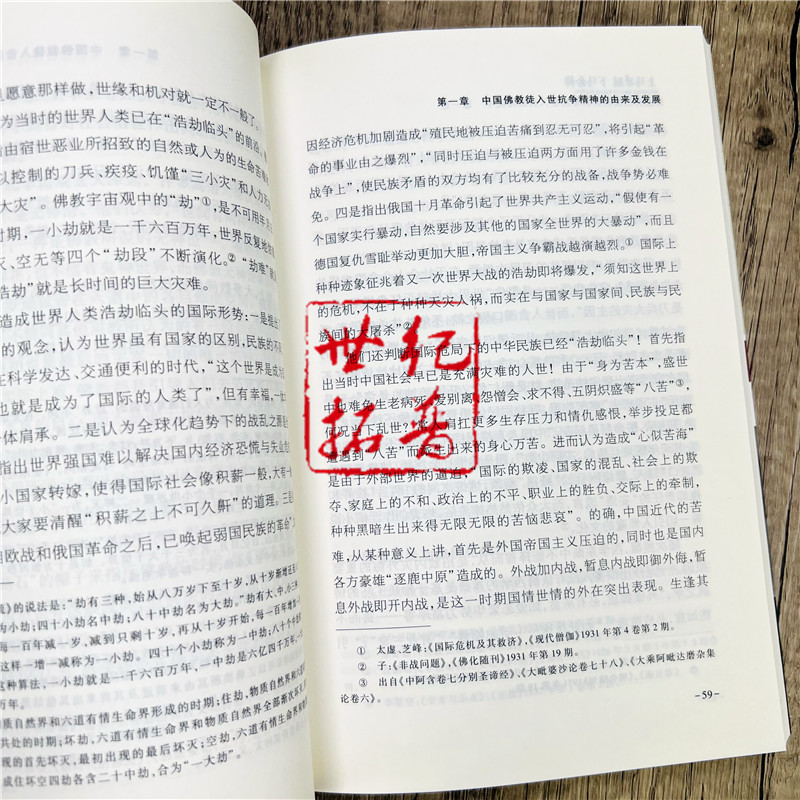 且愿意那样做,世缘和机对就一定不一般了。
为当时的世界人类已在“浩劫临头”的前沿
指由宿世恶业所招致的自然或人为的生命苦
以控制的刀兵、疾疫、饥馑“三小灾”和人力
大灾”。佛教宇宙观中的“劫”①,是不可用年
时期,一小劫就是一千六百万年,世界反复地
灭、空无等四个“劫段”不断演化。② “劫难”
浩劫”就是长时间的巨大灾难。
造成世界人类浩劫临头的国际形势:一是指
的观念,认为世界虽有国家的区别,民族的不
在科学发达、交通便利的时代,“这个世界是成
也就是成为了国际的人类了”,但有幸福,一体
体肩承。二是认为全球化趋势下的战乱之源是
指出世界强国难以解决国内经济恐慌与失业
小国家转嫁,使得国际社会像积薪一般,大有一
大家要清醒“积薪之上不可久厝”的道理。三是
欧战和俄国革命之后,已唤起弱国民族的革命
的说法是:“劫有三种,始从八万岁下至十岁,从十岁渐增近至
为小劫;四十小劫名中劫;八十中劫名为大劫。”劫有大、中、小三种
每一百年减一岁,减到只剩十岁,再从十岁开始,每一百年增
这样一增一减称为一小劫。四十个小劫称为一中劫;八十个
这种算法,一小劫就是一千六百万年,一中劫是六亿四千万年,一
万年。
质自然界和六道有情生命界形成的时期;住劫,物质自然界和六道
共处的时期;坏劫,六道有情生命界和物质自然界全部渐次坏
现的首先坏灭,最初出现的最后坏灭;空劫,六道有情生命
成住坏空四劫各含二十中劫,合为“一大劫”。
第一章 中国佛教徒入世抗争精神的由来及发展
因经济危机加剧造成“殖民地被压迫苦痛到忍无可忍”,将引起“革
命的事业由之爆烈”,“同时压迫与被压迫两方面用了许多金钱在
战争上”,使民族矛盾的双方均有了比较充分的战备,战争势必难
免。四是指出俄国十月革命引起了世界共产主义运动,“假使有一
个国家实行暴动,自然要涉及其他的国家全世界的大暴动”,而且
德国复仇雪耻举动更加大胆,帝国主义争霸战越演越烈。① 国际上
种种迹象征兆着又一次世界大战的浩劫即将爆发,“须知这世界上
的危机,不在于种种天灾人祸,而实在与国家与国家间、民族与民
族间的大屠杀”②
他们还判断国际危局下的中华民族已经“浩劫临头”!首先指
出当时中国社会早已是充满灾难的人世!由于“身为苦本”,盛世
中也难免生老病死、爱别离、怨憎会、求不得、五阴炽盛等“八苦”③,
何况当下乱世?常人肩扛更多生存压力和情仇感恨,举步投足都
遭遇到“八苦”而派生出来的身心万苦。进而认为造成“心似苦海”
是由于外部世界的逼迫,“国际的欺凌、国家的混乱、社会上的欺
夺、家庭上的不和、政治上的不平、职业上的胜负、交际上的牵制,
种种黑暗生出来得无限无限的苦恼悲哀”。的确,中国近代的苦
难,从某种意义上讲,首先是外国帝国主义压迫的,同时也是国内
各方豪雄“逐鹿中原”造成的。外战加内战,暂息内战即御外侮,暂
息外战即开内战,是这一时期国情世情的外在突出表现。生逢其
① 太虚、芝峰:《国际危机及其救济》,《现代僧伽》1931 年第 4 卷第 2 期。
② 子:《非战问题》,《佛化随刊》1931 年第 19 期。
③ 出自《中阿含卷七分别圣谛经》、《大毗婆沙论卷七十八》、《大乘阿毗达磨杂集
论卷六》。
-59-
世纪
拓普